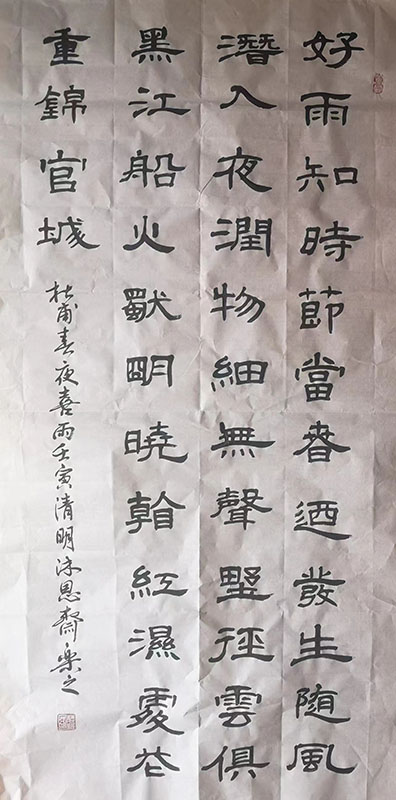 好雨知時節當春迺發生随風
潛入夜潤物細無聲墅徑雲俱
黑江船火獨眀曉看紅濕處花
重錦官城
杜甫春夜喜雨壬寅清明沐思齋樂之